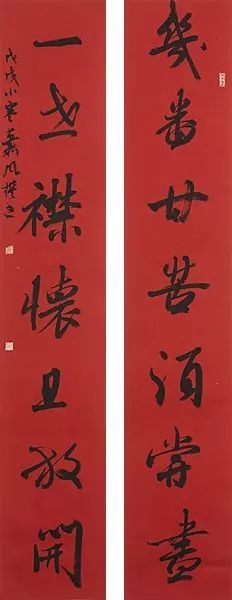 幾番甘苦須嘗盡
一世襟懷且放開
戊戌小寒